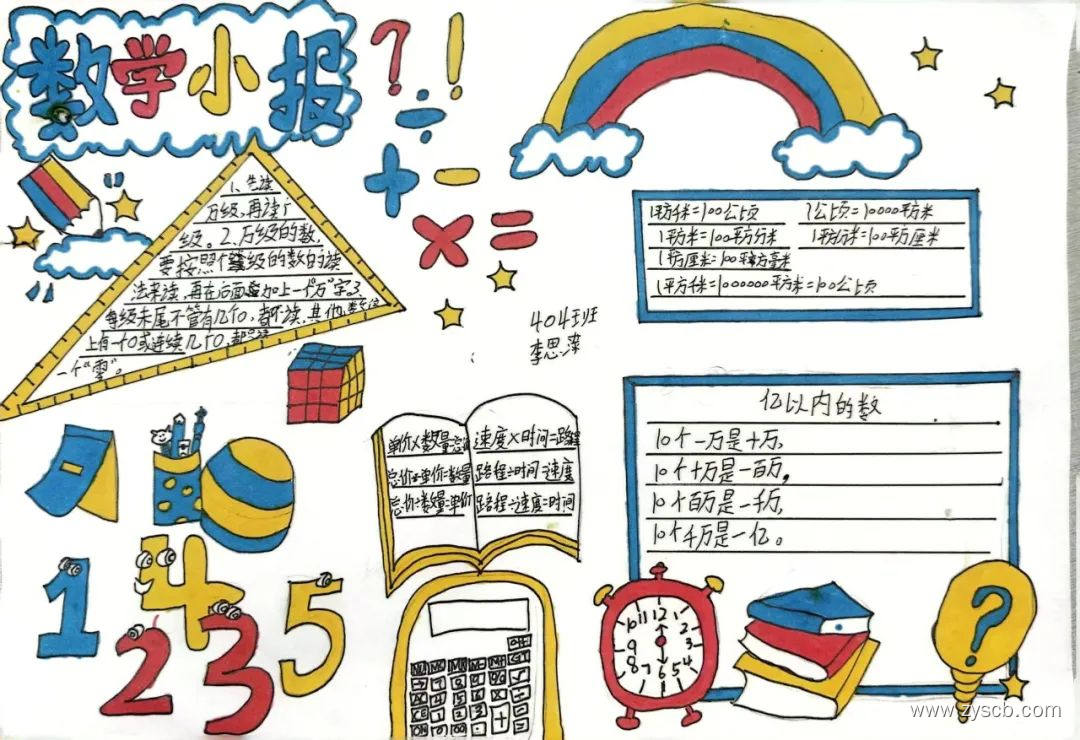 数学小报
? !
÷
+ -
× =
1、先读
万级,再读个
级。2、万级的数,
要按照个级的数的读
法来读,再在后面加上一个"万"字。3、
每级末尾不管有几个0,都不读,其他数位
上有一个0或连续几个0,都只读
一个"零"。
1平方千米=100公顷 1公顷=10000平方米
1平方米=100平方分米 1平方分米=100平方厘米
1平方厘米=100平方毫米
1平方千米=1000000平方米=100公顷
404班
李思滢
单价×数量=总价
总价÷单价=数量
总价÷数量=单价
速度×时间=路程
路程÷时间=速度
路程÷速度=时间
亿以内的数
10个一万是十万,
10个十万是一百万,
10个百万是一千万,
10个千万是一亿。
1 4 2 3 5
12 1 2 3 4 5 6 7 8 9 10 11
?
www.zyscb.com